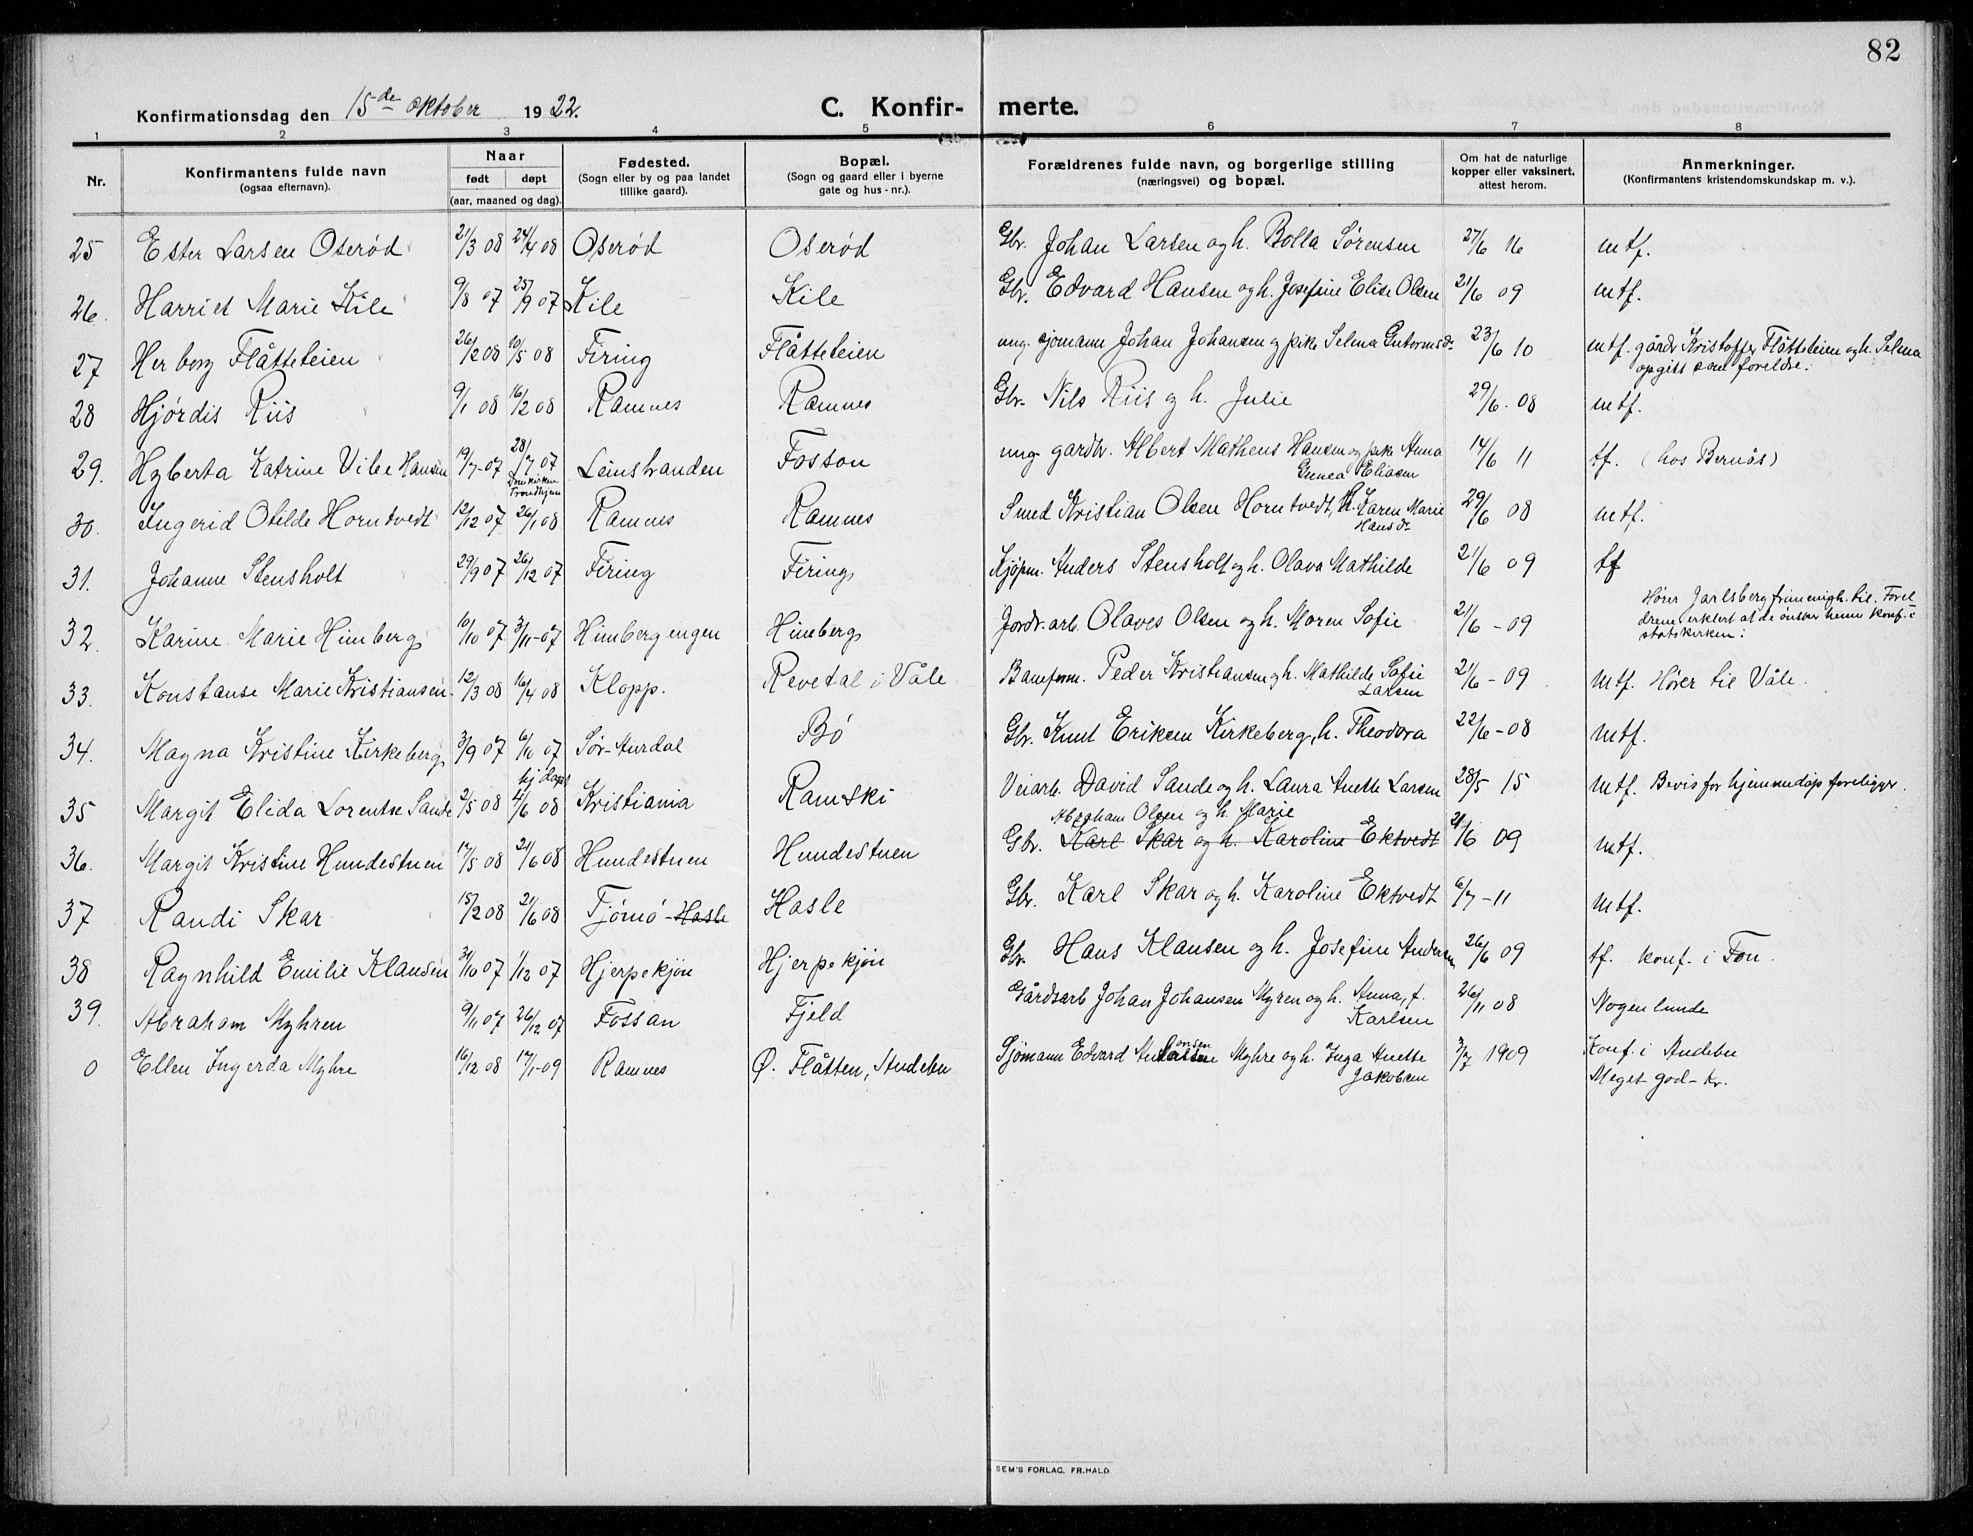 82
Konfirmationsdag den 15de oktober 1922. C. Konfir- merte.
1 2 3 4 5 6 7 8
Nr. Konfirmantens fulde navn (ogsaa efternavn). Naar født døpt (aar, maaned og dag). Fødested. (Sogn eller by og paa landet tillike gaard). Bopæl. (Sogn og gaard eller i byerne gate og hus-nr.). Forældrenes fulde navn, og borgerlige stilling (næringsvei) og bopæl. Om hat de naturlige kopper eller vaksinert, attest herom. Anmerkninger. (Konfirmantens kristendomskundskap m. v.).
25 Ester Larsen Oserød 21/3 08 24/4 08 Oserød Oserød Gbr. Johan Larsen og h. Bolla Sørensen 27/6 16 mtf.
26. Harriet Marie Kile 9/8 07 25/9 07 Kile Kile Gbr. Edvard Hansen og h. Josefine Elise Olsen 21/6 09 mtf.
27 Herborg Flåtteteien 26/2 08 10/5 08 Firing Flåtteteien ung. sjømann Johan Johansen og pike Selma Gutormsd. 23/6 10 mtf. gårdr Kristoffer Flåtteteien og h. Selma
opgitt som foreldre.
28 Hjørdis Riis 9/1 08 16/2 08 Ramnes Ramnes Gbr. Nils Riis og h. Julie 29/6. 08 mtf.
29. Hyberta Katrine Vibe Hansen 19/7-07 28/7 07 Leinstranden Fosson ung. gardbr. Albert Mathens Hansen og pike Anna 14/6 11 tf. (hos Bernås)
Domkirken Trondhjem Ennea Eliasen
30. Ingerid Otilde Horntvedt 12/12 07 26/1 08 Ramnes Ramnes Smed Kristian Olsen Horntvedt, h. Karen Marie 29/6 08 mtf.
Hansdr.
31. Johanne Stensholt 29/9 07 26/12 07 Firing Firing Kjøpm. Anders Stensholt og h. Olava Mathilde 21/6 09 tf
32. Karine Marie Himberg 10/10 07 3/11-07 Himbergengen Himberg Jordr. arb. Olaves Olsen og h. Maren Sofie 21/6-09 Hører Jarlsberg frimenigh. til. Forel-
drene erklert at de ønsker henne konf. i
statskirken:
33. Konstanse Marie Kristiansen 12/3 08 16/4 08 Klopp. Revetal i Våle Baneform. Peder Kristiansen og h. Mathilde Sofie 21/6-09 mtf. Hører til Våle.
Larsen
34. Magna Kristine Kirkeberg 3/9 07 6/10 07 Sør-Aurdal Bø Gbr. Knut Eriksen Kirkeberg, h. Theodora 22/6-08 mtf.
hj døpt
35 Margit Elida Lorentse Sande 2/5 08 4/6 08 Kristiania Ramski Veiarb. David Sande og h. Laura Anette Larsen 28/5 15 mtf. Bevis for hjemmedåp foreligger.
Abraham Olsen og h. Marie
36. Margit Kristine Hundestuen 17/5 08 21/6 08 Hundestuen Hundestuen Gbr. Karl Skar og h. Karoline Ektvedt 21/6 09 mtf.
37 Randi Skar 15/2 08 21/6 08 Tjømø-Hasle Hasle Gbr. Karl Skar og h. Karoline Ektvedt 6/7-11 mtf.
38 Ragnhild Emilie Klausen 30/10 07 1/12 07 Hjerpekjøn Hjerpekjøn Gbr Hans Klausen og h. Josefine Andersen 26/6 09 tf. konf. i Fon.
39. Abraham Myhren 9/11 07 26/12 07 Fossan Fjeld Gårdsarb Johan Johansen Myren og h. Anna, f. 26/11 08 Nogenlunde
Karlsen
0 Ellen Ingerda Myhre 16/12 08 17/1-09 Ramnes Ø. Flåtten, Andebu Sjømann Edvard Antonsen Myhre og h. Inga Anette 3/7 1909 Konf. i Andebu
Jakobsen Meget god - kr.
SEM'S FORLAG, FR.HALD